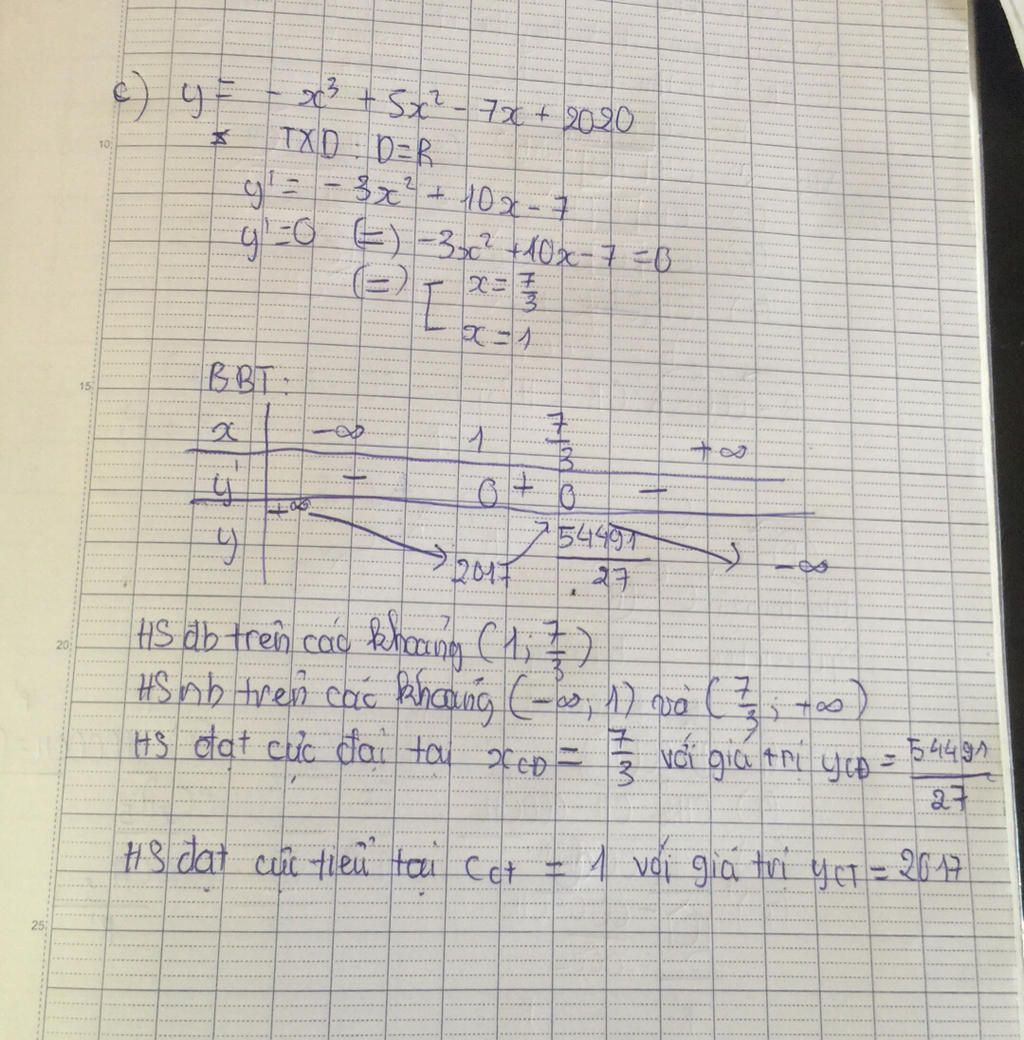 c) y = - x³ + 5x² - 7x + 2020
* TXD : D=R
y' = - 3x² + 10x - 7
y'=0 (=) -3x² +10x-7 =0
(=) [ x = 7/3
x = 1
BBT:
x -∞ 1 7/3 +∞
y' - 0 + 0 -
y +∞ 2017 54491/27 -∞
HS đb trên các khoảng (1; 7/3)
HS nb trên các khoảng (-∞; 1) và (7/3; +∞)
HS đạt cực đại tại xCĐ = 7/3 với giá trị yCĐ = 54491/27
HS đạt cực tiểu tại CCT = 1 với giá trị yCT = 2017
10
15
20
25